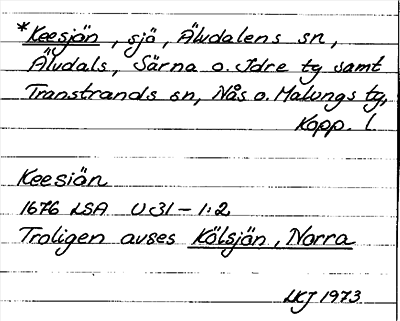 *Keesjön, sjö, Älvdalens sn,
Älvdals, Särna o. Idre tg samt
Transtrands sn, Nås o. Malungs tg,
Kopp. l.
Keesiön
1676 LSA U31-1:2
Troligen avses Kölsjön, Norra
LKJ 1973